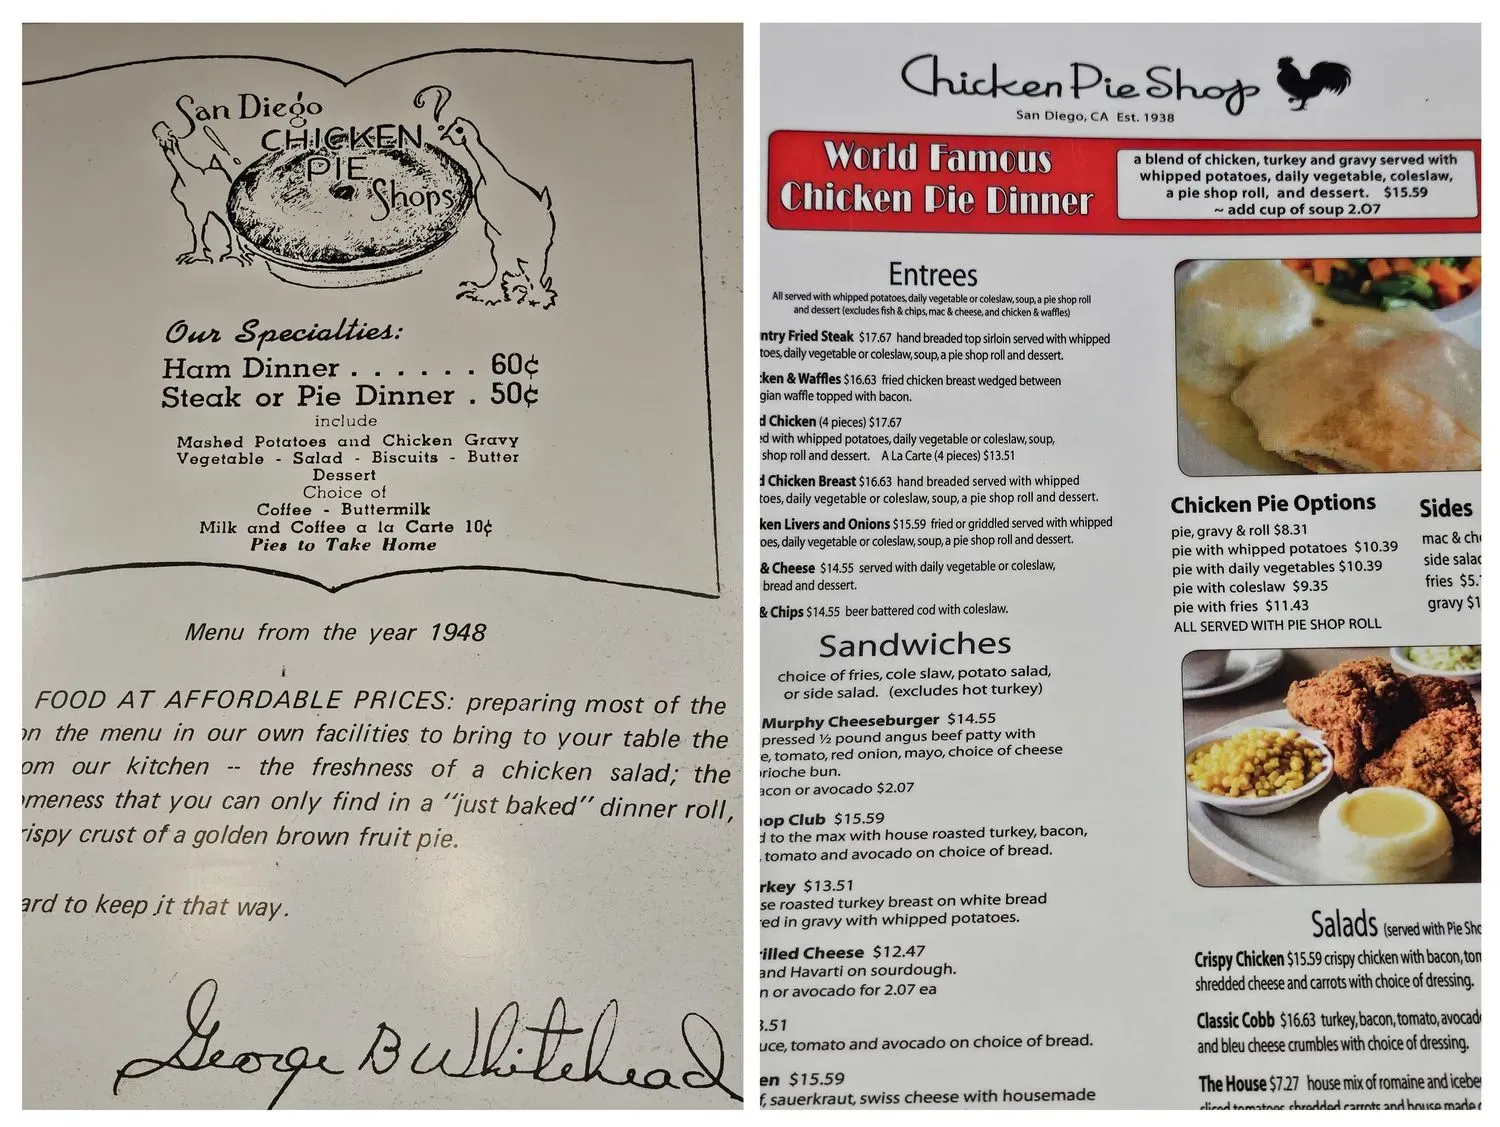 San Diego
CHICKEN
PIE
Shops
Our Specialties:
Ham Dinner . . . . . . 60¢
Steak or Pie Dinner . 50¢
include
Mashed Potatoes and Chicken Gravy
Vegetable - Salad - Biscuits - Butter
Dessert
Choice of
Coffee - Buttermilk
Milk and Coffee a la Carte 10¢
Pies to Take Home
Menu from the year 1948
FOOD AT AFFORDABLE PRICES: preparing most of the
on the menu in our own facilities to bring to your table the
om our kitchen -- the freshness of a chicken salad; the
omeness that you can only find in a "just baked" dinner roll,
rispy crust of a golden brown fruit pie.
ard to keep it that way.
George B Whitehead
Chicken Pie Shop
San Diego, CA Est. 1938
World Famous
Chicken Pie Dinner
a blend of chicken, turkey and gravy served with
whipped potatoes, daily vegetable, coleslaw,
a pie shop roll, and dessert. $15.59
~ add cup of soup 2.07
Entrees
All served with whipped potatoes, daily vegetable or coleslaw, soup, a pie shop roll
and dessert (excludes fish & chips, mac & cheese, and chicken & waffles)
ntry Fried Steak $17.67 hand breaded top sirloin served with whipped
toes, daily vegetable or coleslaw, soup, a pie shop roll and dessert.
ken & Waffles $16.63 fried chicken breast wedged between
gian waffle topped with bacon.
d Chicken (4 pieces) $17.67
ed with whipped potatoes, daily vegetable or coleslaw, soup,
shop roll and dessert. A La Carte (4 pieces) $13.51
d Chicken Breast $16.63 hand breaded served with whipped
toes, daily vegetable or coleslaw, soup, a pie shop roll and dessert.
ken Livers and Onions $15.59 fried or griddled served with whipped
oes, daily vegetable or coleslaw, soup, a pie shop roll and dessert.
& Cheese $14.55 served with daily vegetable or coleslaw,
bread and dessert.
& Chips $14.55 beer battered cod with coleslaw.
Sandwiches
choice of fries, cole slaw, potato salad,
or side salad. (excludes hot turkey)
Murphy Cheeseburger $14.55
pressed ½ pound angus beef patty with
e, tomato, red onion, mayo, choice of cheese
rioche bun.
acon or avocado $2.07
op Club $15.59
d to the max with house roasted turkey, bacon,
, tomato and avocado on choice of bread.
rkey $13.51
se roasted turkey breast on white bread
red in gravy with whipped potatoes.
rilled Cheese $12.47
and Havarti on sourdough.
n or avocado for 2.07 ea
3.51
uce, tomato and avocado on choice of bread.
en $15.59
f, sauerkraut, swiss cheese with housemade
Chicken Pie Options
pie, gravy & roll $8.31
pie with whipped potatoes $10.39
pie with daily vegetables $10.39
pie with coleslaw $9.35
pie with fries $11.43
ALL SERVED WITH PIE SHOP ROLL
Sides
mac & che
side salad
fries $5.
gravy $1
Salads (served with Pie Sho
Crispy Chicken $15.59 crispy chicken with bacon, tom
shredded cheese and carrots with choice of dressing.
Classic Cobb $16.63 turkey, bacon, tomato, avocad
and bleu cheese crumbles with choice of dressing.
The House $7.27 house mix of romaine and icebe
sliced tomatoes, shredded carrots and house made